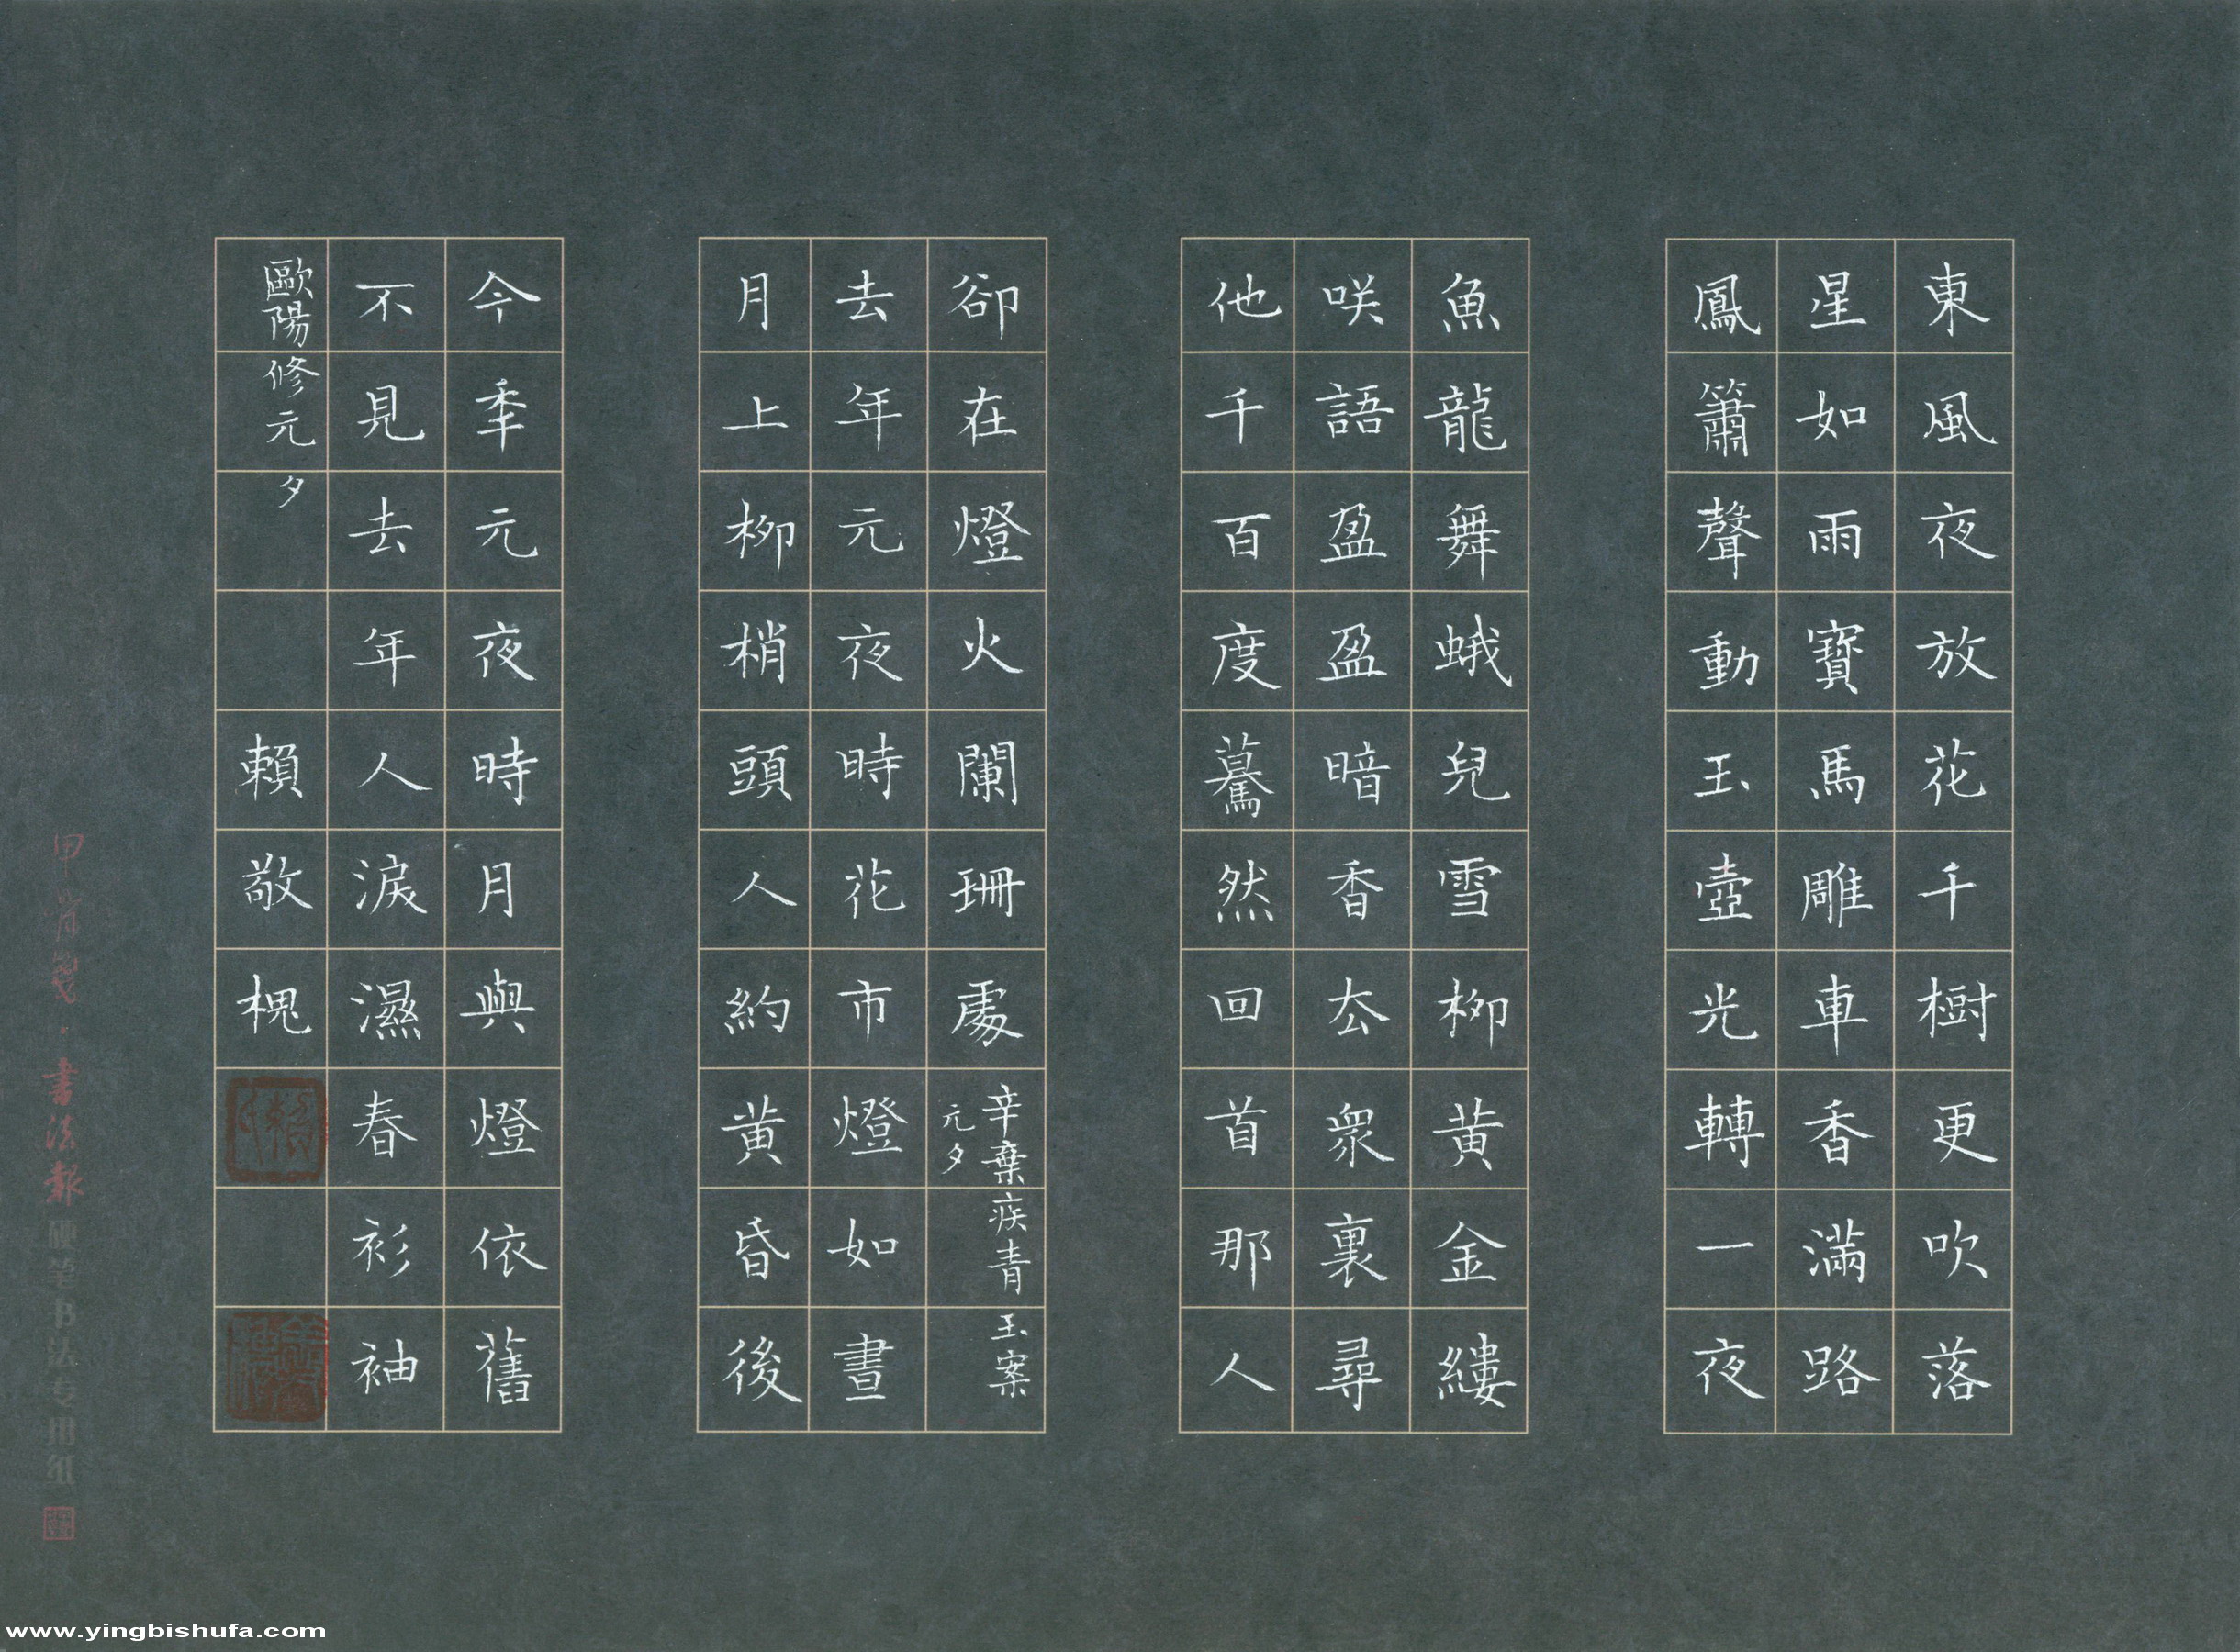 東風夜放花千樹更吹落
星如雨寶馬雕車香滿路
鳳簫聲動玉壺光轉一夜
魚龍舞蛾兒雪柳黄金縷
咲語盈盈暗香厺衆裏尋
他千百度驀然回首那人
卻在燈火闌珊處
辛棄疾青玉案
元夕
去年元夜時花市燈如晝
月上柳梢頭人約黄昏後
今秊元夜時月與燈依舊
不見去年人淚濕春衫袖
歐陽修元夕
賴敬槐
甲骨箋·書法報硬笔书法专用纸
www.yingbishufa.com